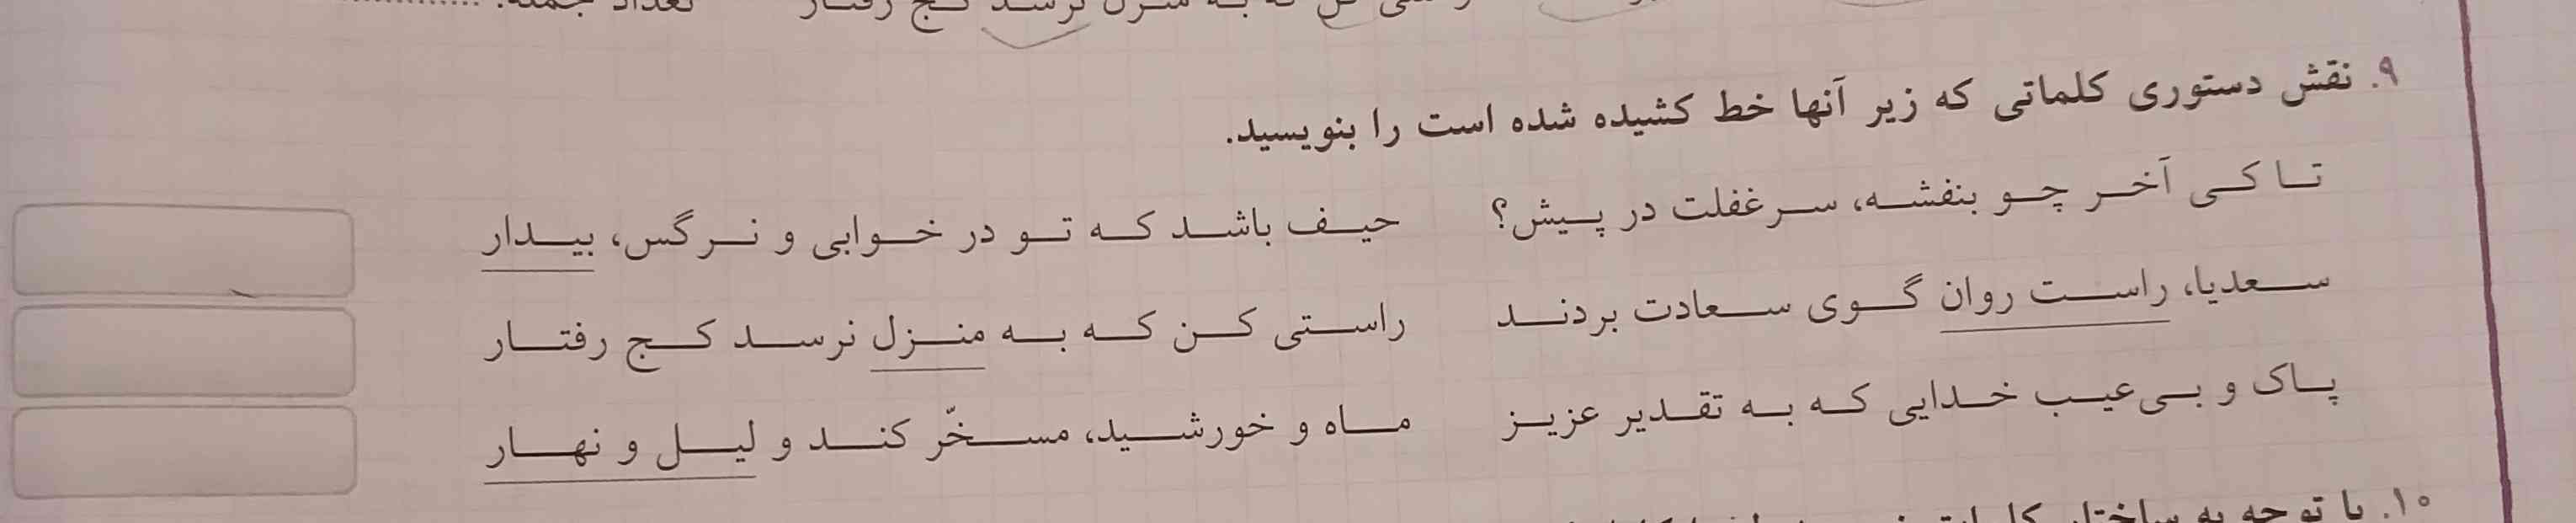 کج رفتار تعداد جمله:
۹. نقش دستوری کلماتی که زیر آنها خط کشیده شده است را بنویسید.
تا کی آخر چو بنفشه، سر غفلت در پیش؟ حیف باشد که تو در خوابی و نرگس، بیدار
سعدیا، راست روان گوی سعادت بردند راستی کن که به منزل نرسد کج رفتار
پاک و بی‌عیب خدایی که به تقدیر عزیز ماه و خورشید، مسخّر کند و لیل و نهار
۱۰. با توجه به ساختار